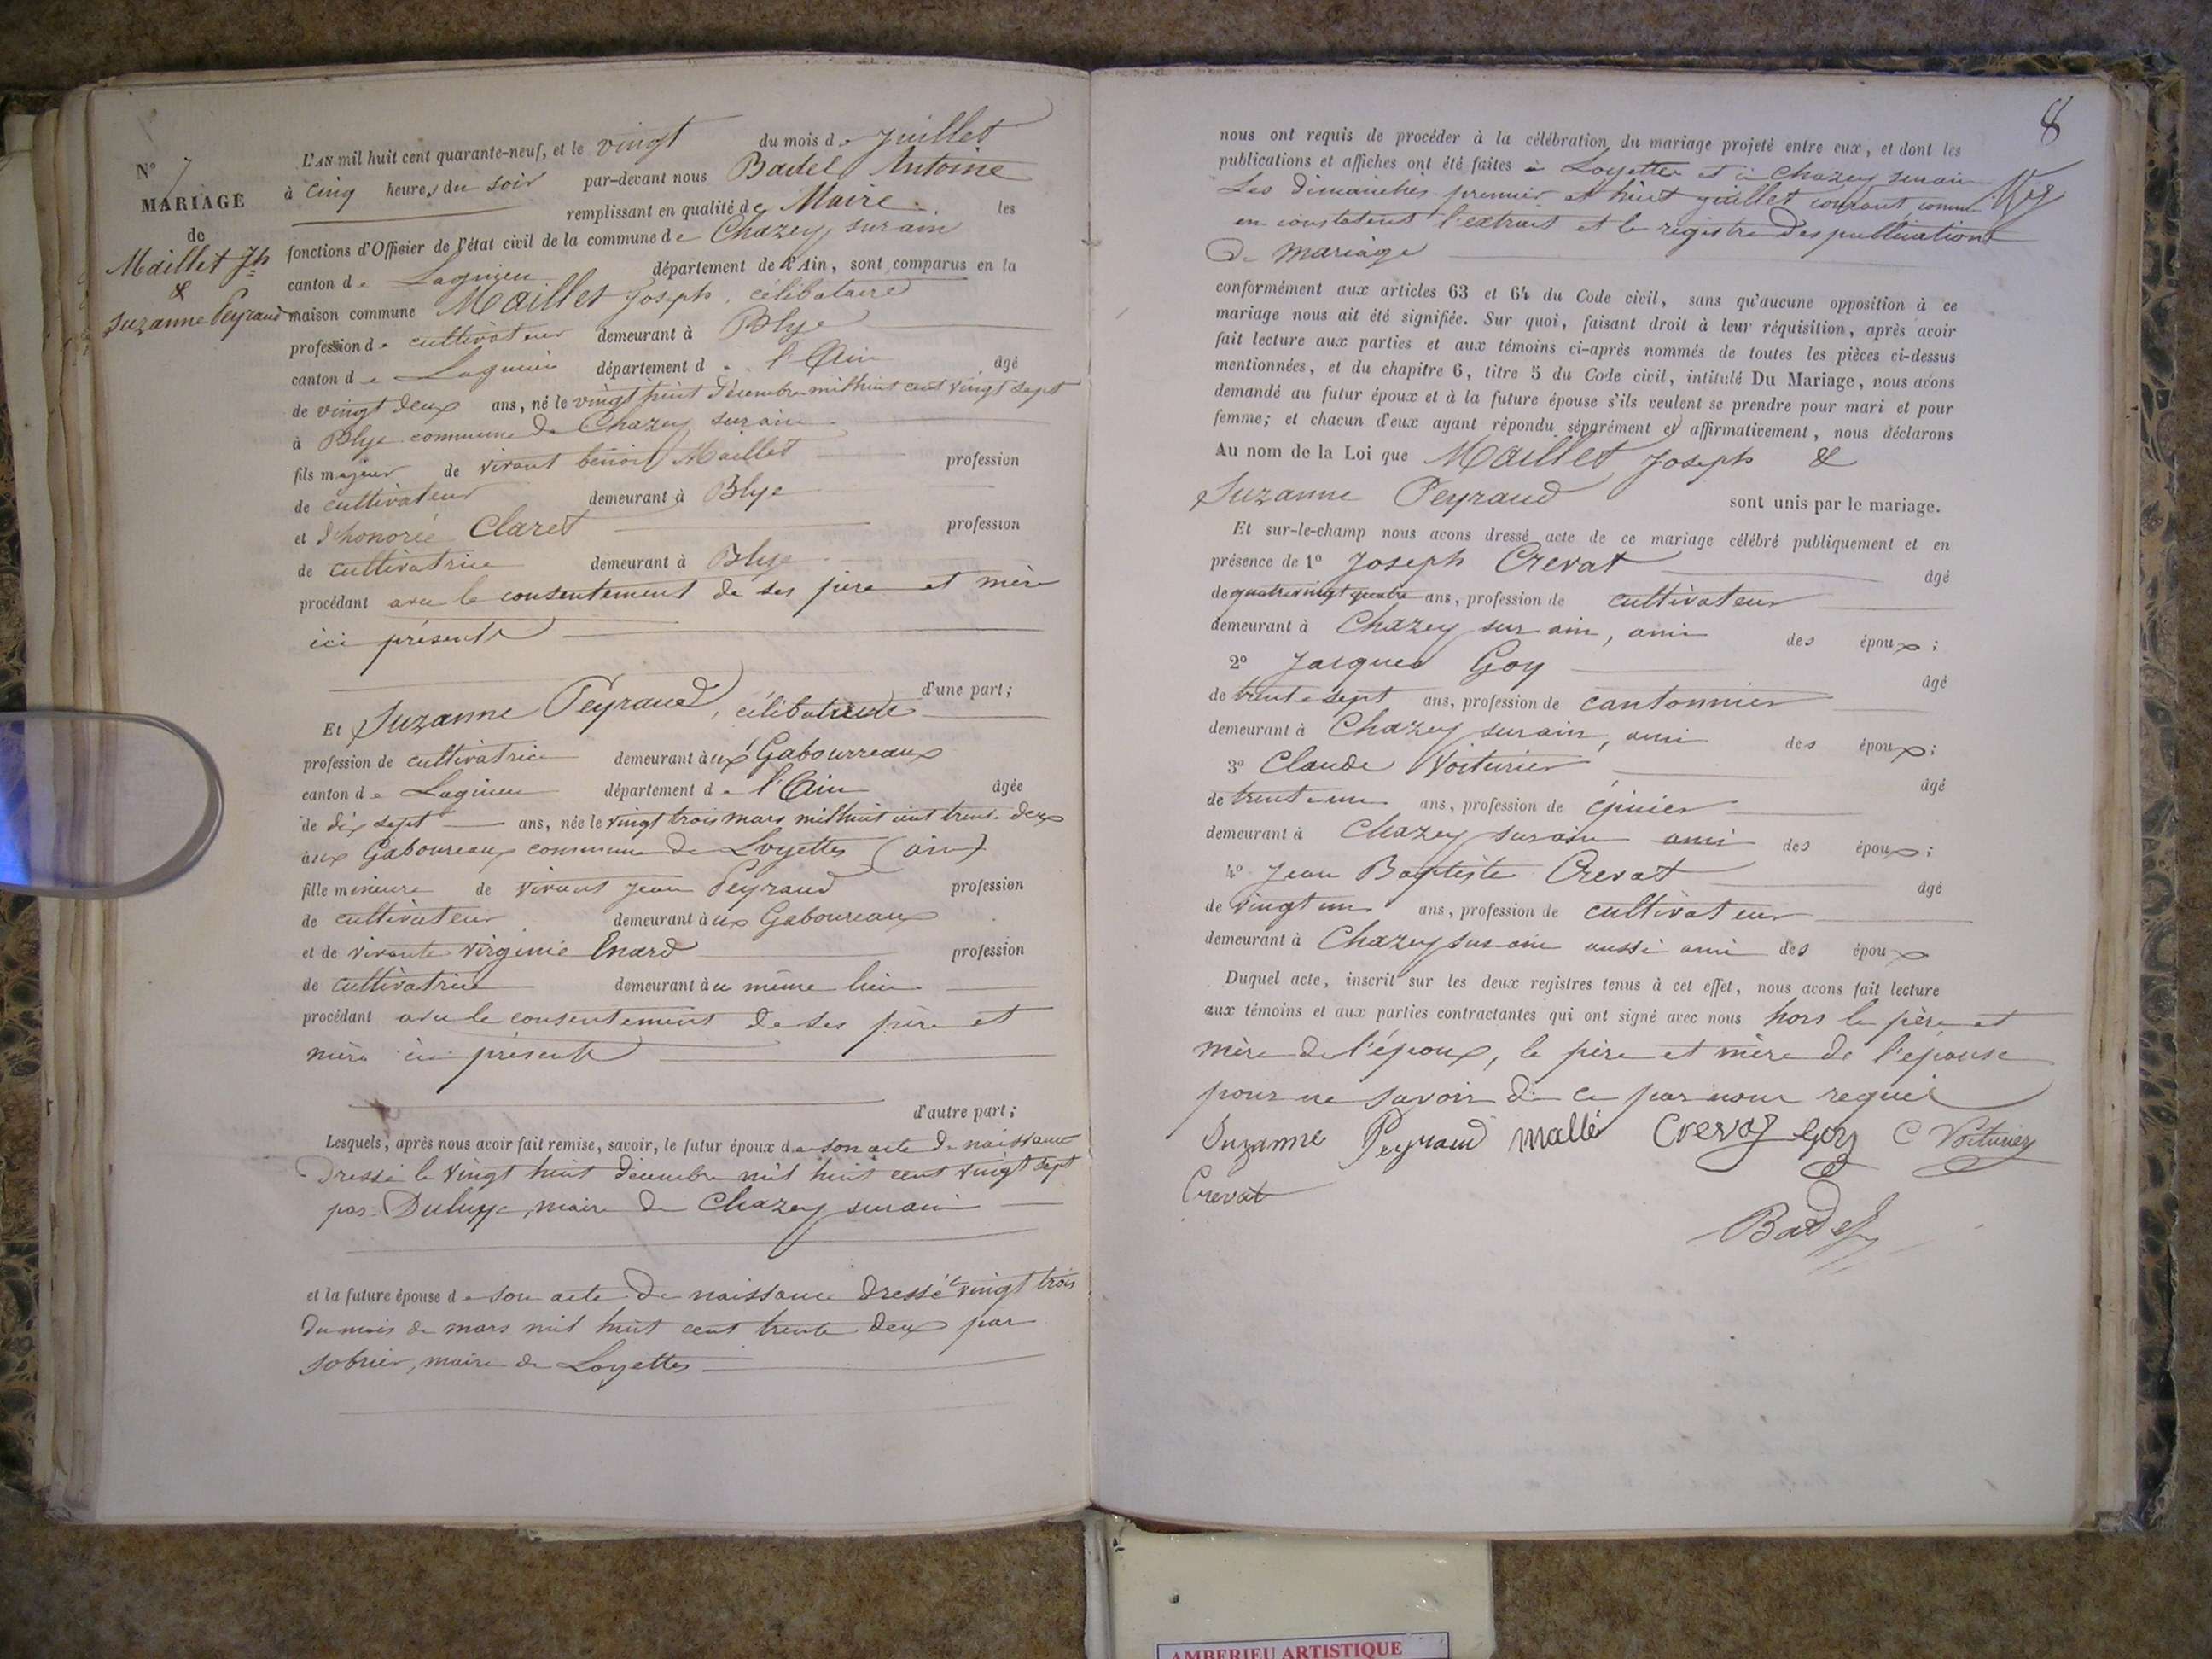 N° 7
MARIAGE
de
Maillet Jh
&
Suzanne Peyraud
L'AN mil huit cent quarante-neuf, et le vingt du mois de Juillet
à cinq heures du soir par-devant nous Badel Antoine
remplissant en qualité de Maire les
fonctions d'Officier de l'état civil de la commune de Chazey sur ain
canton de Lagnieu département de l'Ain, sont comparus en la
maison commune Maillet Joseph, célibataire
profession de cultivateur demeurant à Blye
canton de Lagnieu département de l'Ain âgé
de vingt deux ans, né le vingt huit décembre mil huit cent vingt sept
à Blye commune de Chazey sur ain
fils majeur de vivant benoit Maillet profession
de cultivateur demeurant à Blye
et d'honorée Claret profession
de cultivatrice demeurant à Blye
procédant avec le consentement de ses père et mère
ici présents
d'une part;
Et Suzanne Peyraud, célibataire
profession de cultivatrice demeurant aux Gabourreaux
canton de Lagnieu département de l'Ain âgée
de dix sept ans, née le vingt trois mars mil huit cent trente deux
aux Gaboureaux commune de Loyettes (ain)
fille mineure de vivant Jean Peyraud profession
de cultivateur demeurant aux Gaboureaux
et de vivante virginie Enard profession
de cultivatrice demeurant au même lieu
procédant avec le consentement de ses père et
mère ici présents
d'autre part;
Lesquels, après nous avoir fait remise, savoir, le futur époux de son acte de naissance
Dressé le vingt huit décembre mil huit cent vingt sept
par maire de Chazey sur ain
et la future épouse de son acte de naissance dressé le vingt trois
du mois de mars mil huit cent trente deux par
Sobrier, maire de Loyettes
8
nous ont requis de procéder à la célébration du mariage projeté entre eux, et dont les
publications et affiches ont été faites à Loyettes et à Chazey sur ain
Les dimanches premier et huit juillet courant, comme
en constatent l'extrait et le registre des publications
de mariage
conformément aux articles 63 et 64 du Code civil, sans qu'aucune opposition à ce
mariage nous ait été signifiée. Sur quoi, faisant droit à leur réquisition, après avoir
fait lecture aux parties et aux témoins ci-après nommés de toutes les pièces ci-dessus
mentionnées, et du chapitre 6, titre 5 du Code civil, intitulé Du Mariage, nous avons
demandé au futur époux et à la future épouse s'ils veulent se prendre pour mari et pour
femme; et chacun d'eux ayant répondu séparément et affirmativement, nous déclarons
Au nom de la Loi que Maillet Joseph &
Suzanne Peyraud sont unis par le mariage.
Et sur-le-champ nous avons dressé acte de ce mariage célébré publiquement et en
présence de 1° Joseph Crevat âgé
de quatrevingt quatre ans, profession de cultivateur
demeurant à Chazey sur ain, ami des époux;
2° Jacques Goy âgé
de trente sept ans, profession de cantonnier
demeurant à Chazey sur ain, ami des époux;
3° Claude Voiturier âgé
de trente un ans, profession de épicier
demeurant à Chazey sur ain ami des époux;
4° Jean Baptiste Crevat âgé
de vingt un ans, profession de cultivateur
demeurant à Chazey sur ain aussi ami des époux
Duquel acte, inscrit sur les deux registres tenus à cet effet, nous avons fait lecture
aux témoins et aux parties contractantes qui ont signé avec nous hors le père et
mère de l'époux, le père et mère de l'épouse
pour ne savoir de ce par nous requis
Suzanne Peyraud mallé Crevat Goy C Voiturier
Crevat
Badel
AMBERIEU ARTISTIQUE